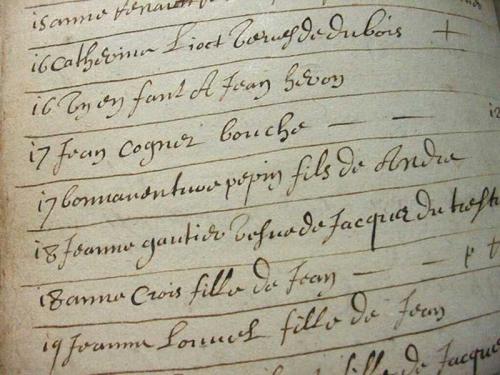 15 anne
16 Catherine Liot Vefve de dubois +
16 Un enfant A Jean heron
17 Jean Cogner bouche — —
17 bonnaventure pepin fils de Andre
18 Jeanne gautier Vefve de Jacques du
18 anne Crois fille de Jean — —
19 Jeanne Louvel fille de Jean
fille de Jacques